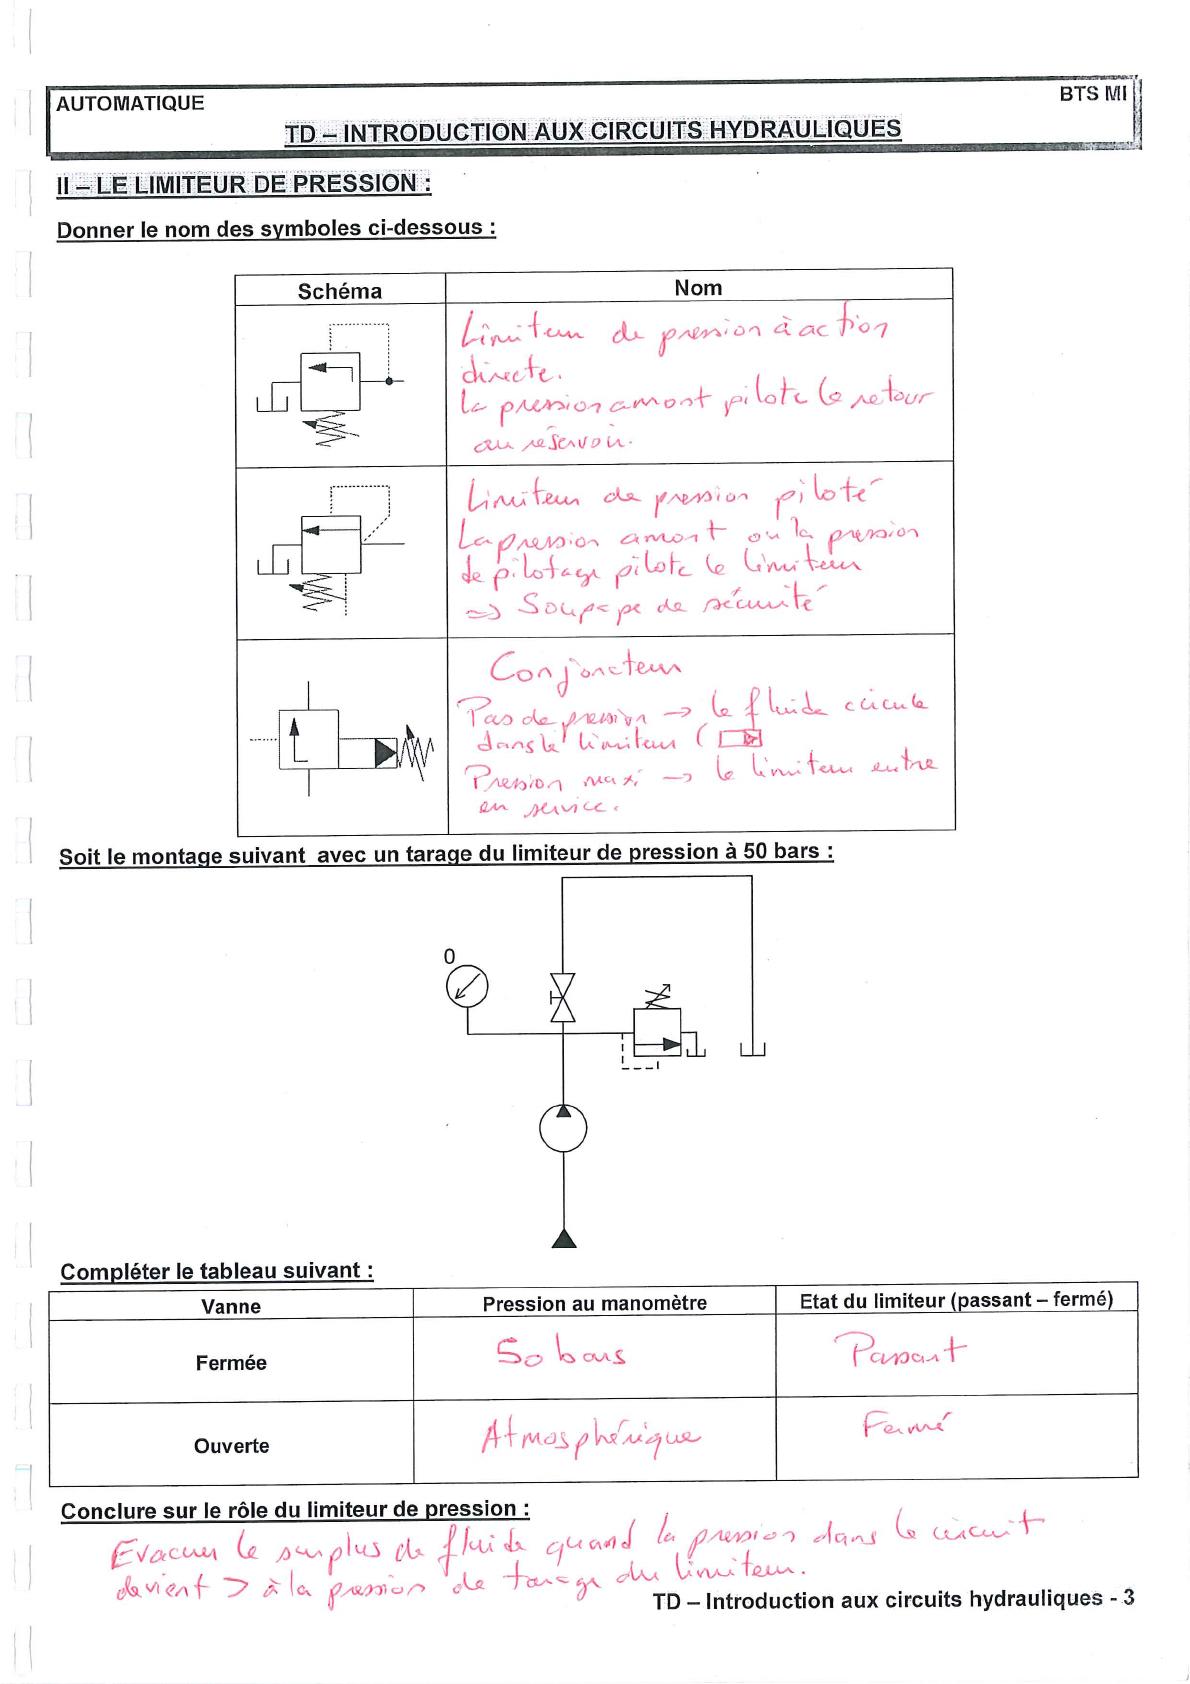 AUTOMATIQUE
BTS MI
TD – INTRODUCTION AUX CIRCUITS HYDRAULIQUES
II – LE LIMITEUR DE PRESSION :
Donner le nom des symboles ci-dessous :
Schéma
Nom
Limiteur de pression à action
directe.
La pression amont pilote le retour
au réservoir.
Limiteur de pression piloté
La pression amont ou la pression
de pilotage pilote le limiteur
=> Soupape de sécurité
Conjoncteur
Pas de pression → le fluide circule
dans le limiteur (
Pression maxi → le limiteur entre
en service.
Soit le montage suivant avec un tarage du limiteur de pression à 50 bars :
0
Compléter le tableau suivant :
Vanne
Pression au manomètre
Etat du limiteur (passant – fermé)
Fermée
50 bars
Passant
Ouverte
Atmosphérique
Fermé
Conclure sur le rôle du limiteur de pression :
Evacuer le surplus de fluide quand la pression dans le circuit
devient > à la pression de tarage du limiteur.
TD – Introduction aux circuits hydrauliques - 3